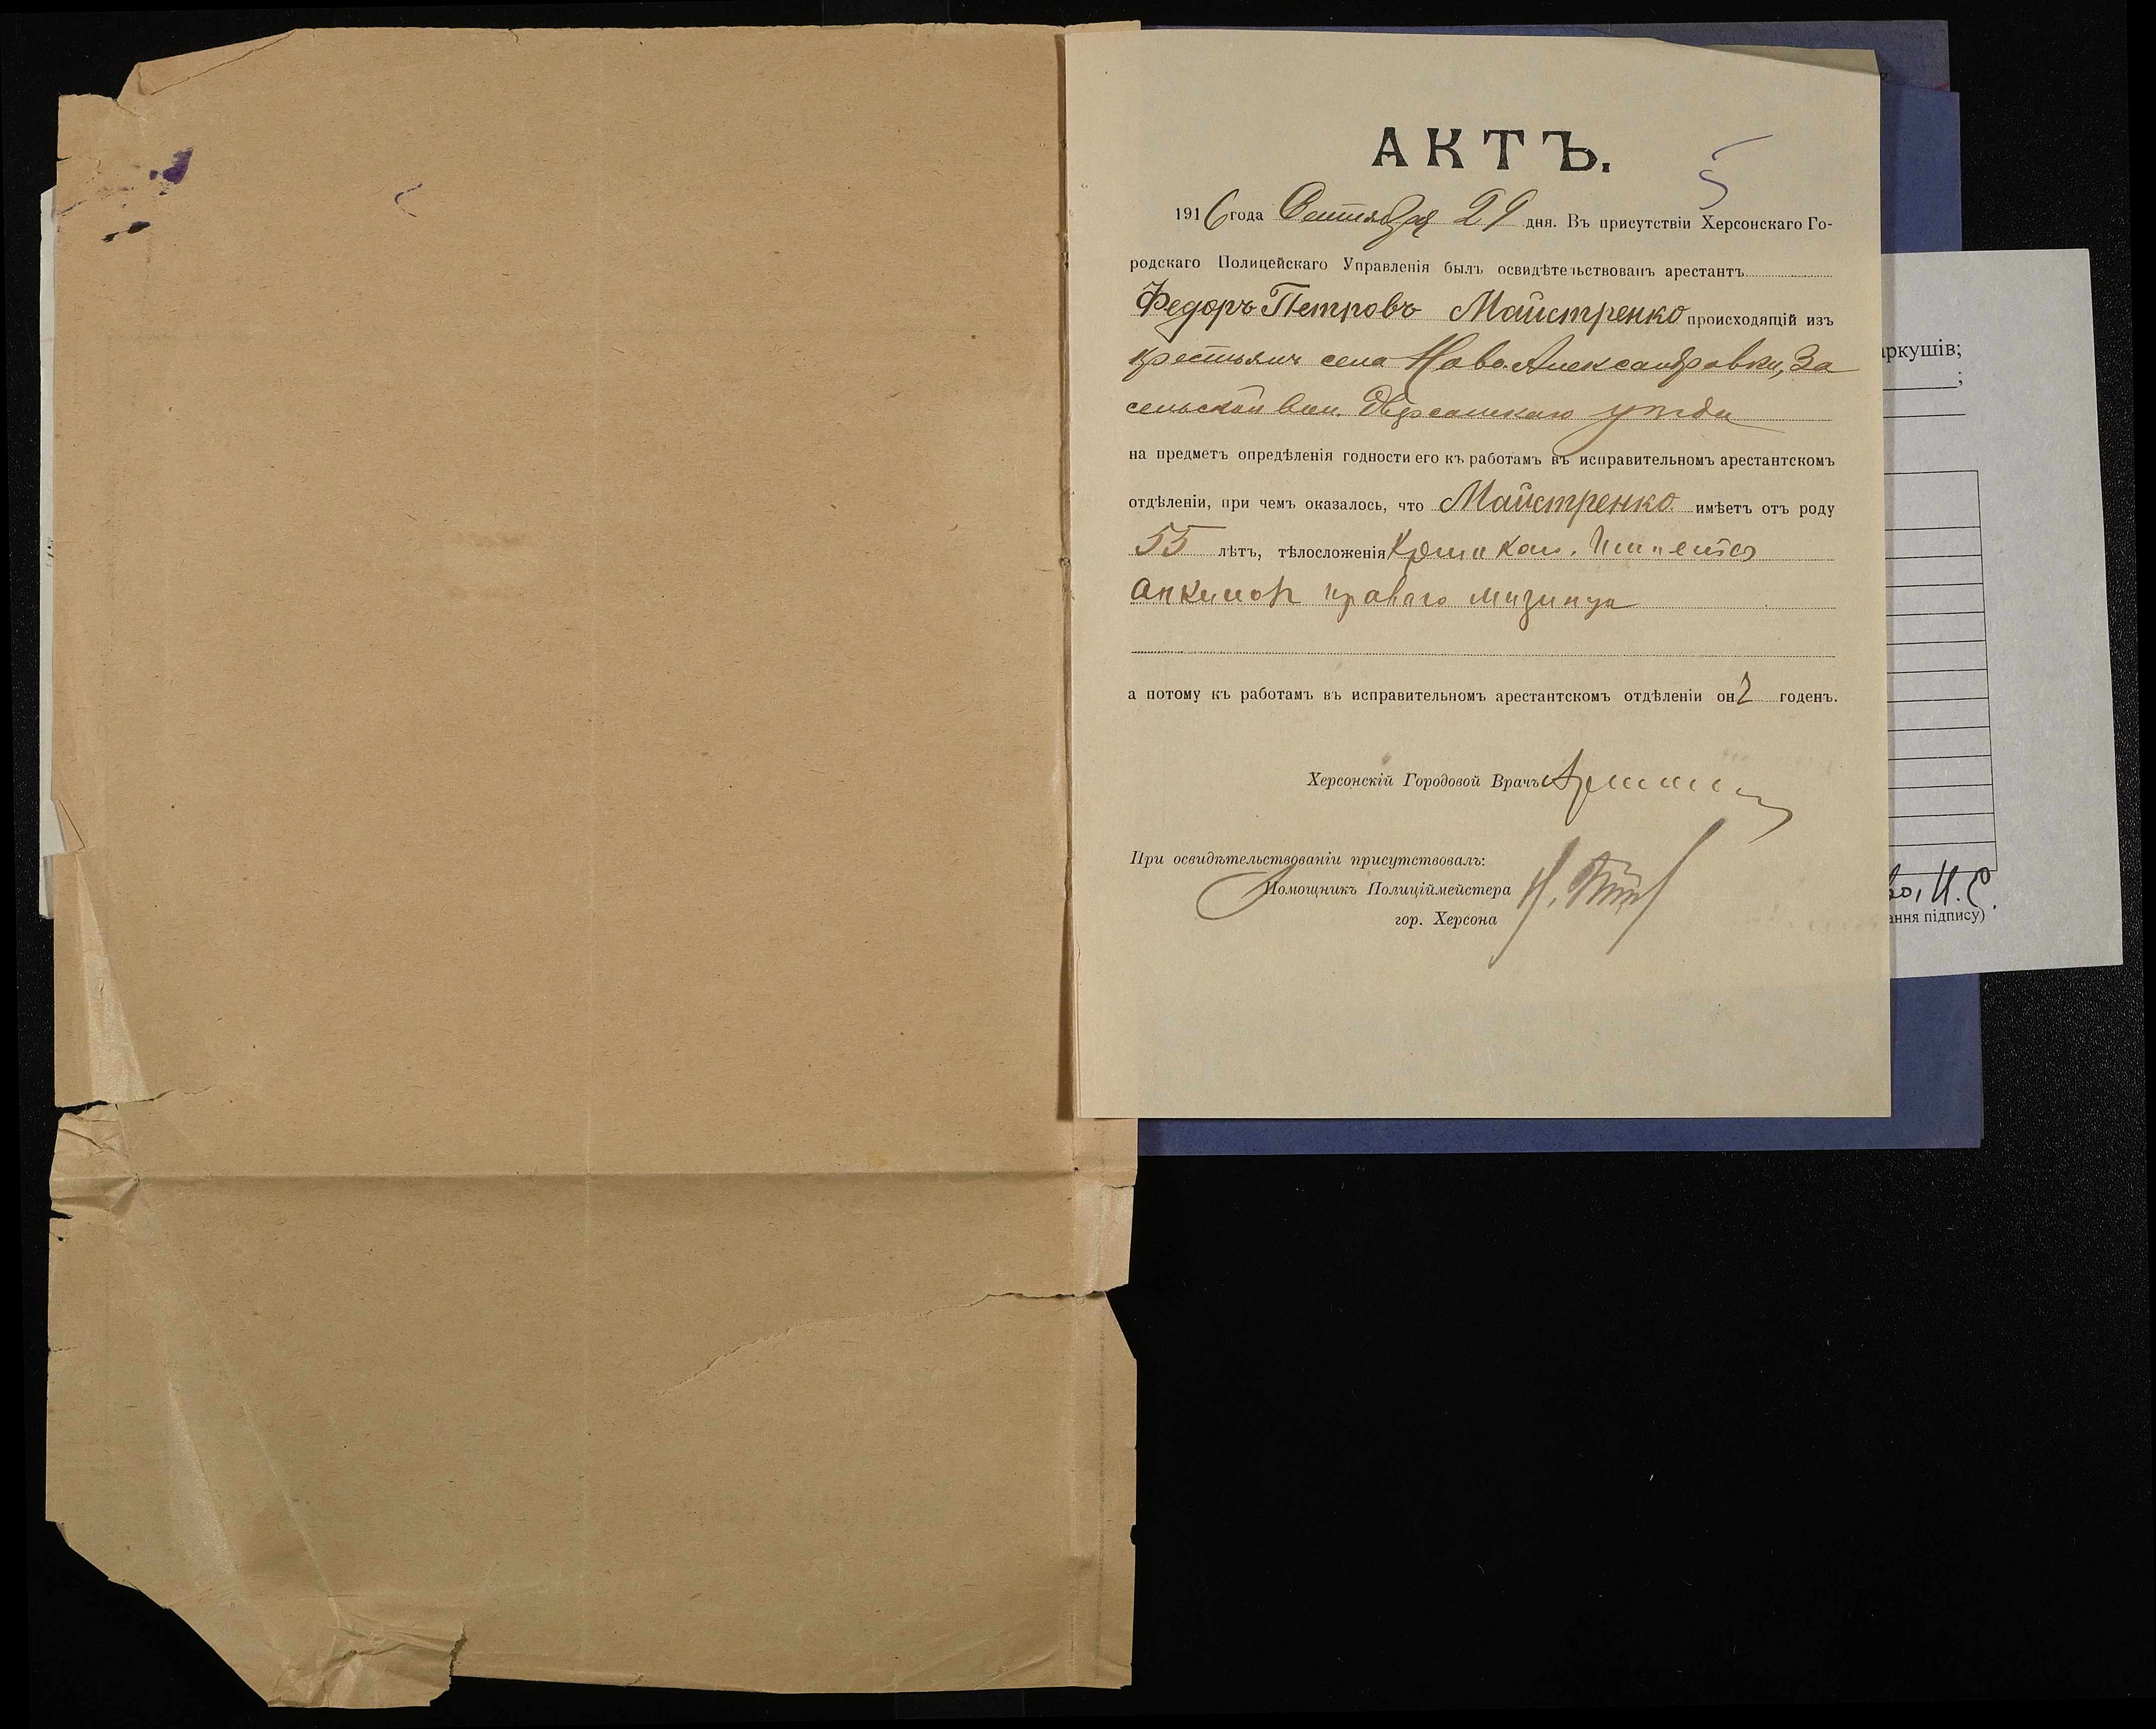 АКТЪ.
5
1916 года Сентября 29 дня. Въ присутствіи Херсонскаго Го-
родскаго Полицейскаго Управленія былъ освидѣтельствованъ арестантъ
Федоръ Петровъ Майстренко происходящій изъ
крестьянъ села Ново-Александровки, За
сельской вол. Херсонскаго уѣзда
на предметъ опредѣленія годности его къ работамъ въ исправительномъ арестантскомъ
отдѣленіи, при чемъ оказалось, что Майстренко имѣетъ отъ роду
55 лѣтъ, тѣлосложенія
праваго мизинца
а потому къ работамъ въ исправительномъ арестантскомъ отдѣленіи он годенъ.
Херсонскій Городовой Врачъ
При освидѣтельствованіи присутствовалъ:
Помощникъ Полиціймейстера
гор. Херсона
аркушів;
;
во, Н. Є.
ання підпису)